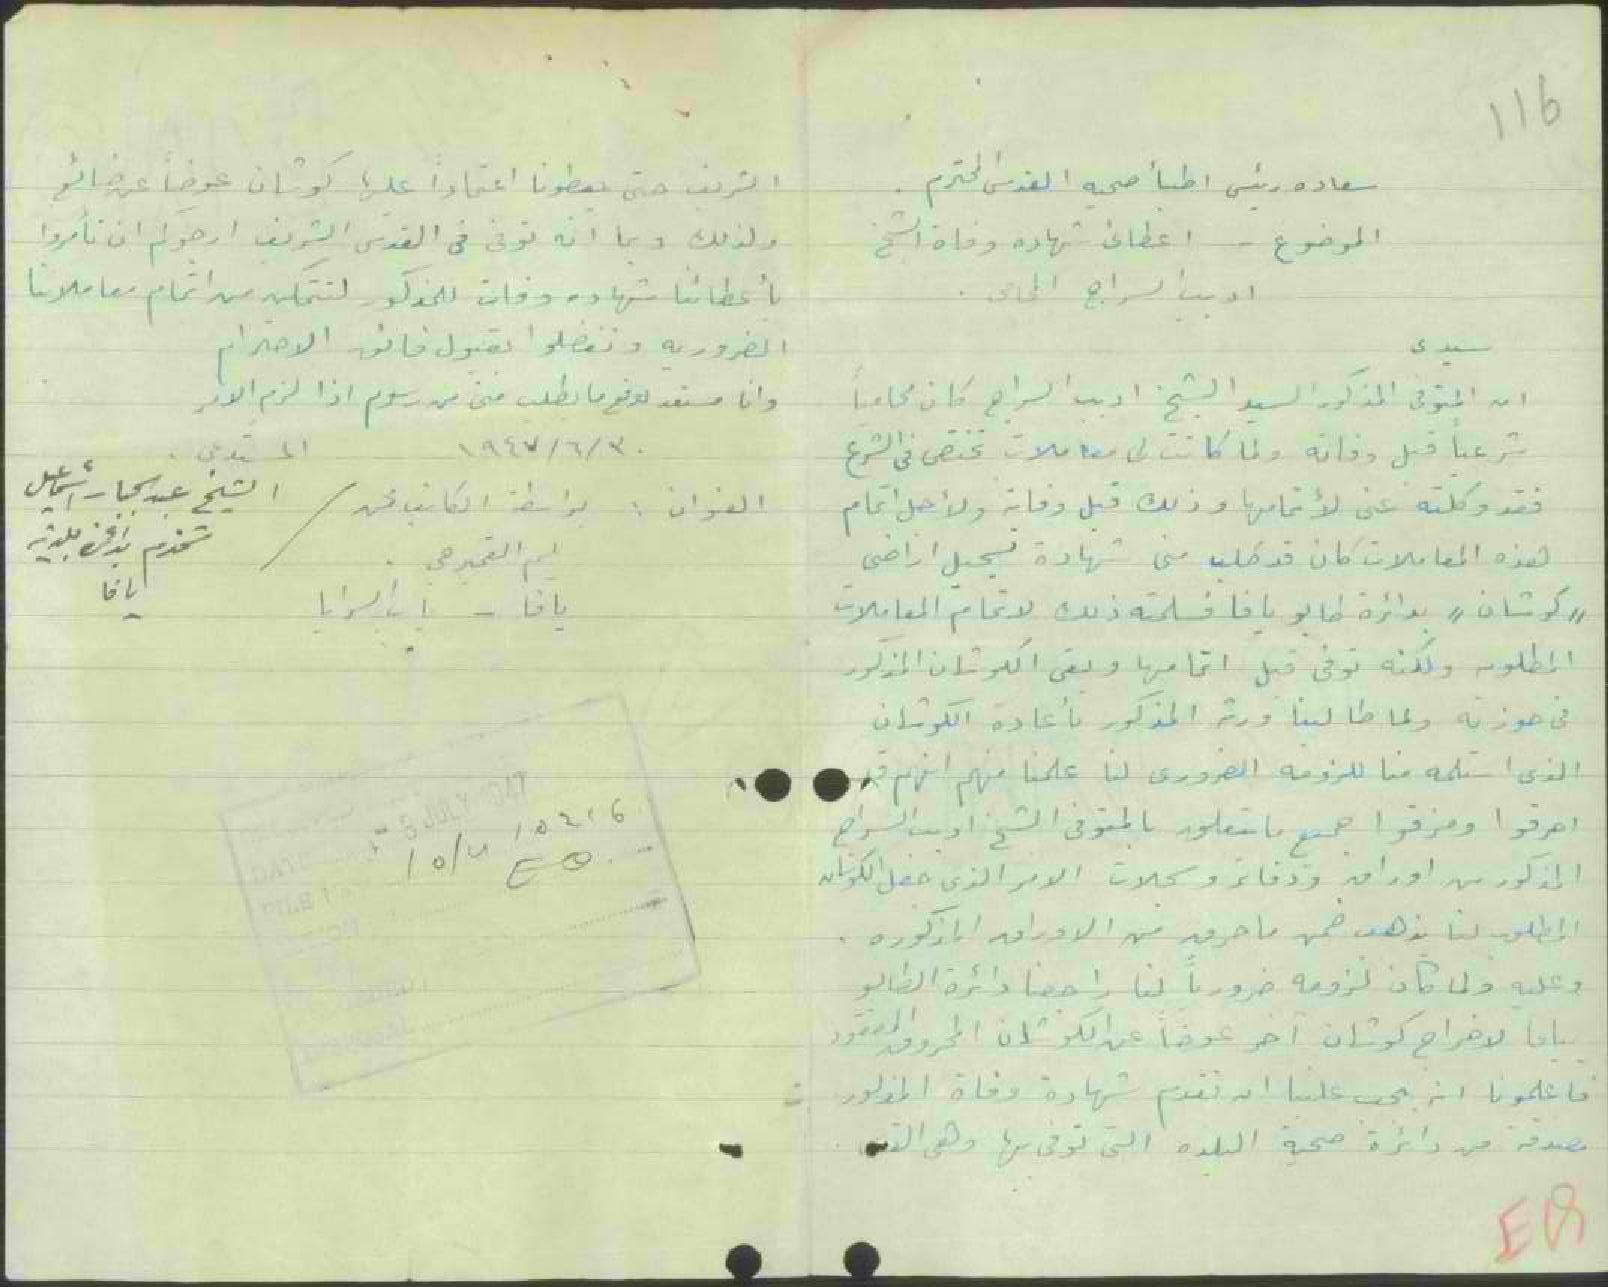 116
سعاده رئيس اطبأ صحيه القدس المحترم .
الموضوع - اعطائى شهاده وفاة الشيخ
اديب السراج المحامى .
سيدى
ان المتوفى المذكور السيد الشيخ اديب السراج كان محامياً
شرعياً قبل وفاته ولما كانت لى معاملات تختص فى الشرع
فقد وكلته عنى لأتمامها وذلك قبل وفاته ولأجل اتمام
هذه المعاملات كان قد طلب منى شهادة تسجيل اراضى
"كوشان" بدائرة طابو يافا فسلمته ذلك لاتمام المعاملات
المطلوبه ولكنه توفى قبل اتمامها وبقى الكوشان المذكور
فى حوزته ولما طالبنا ورثة المذكور بأعادة الكوشان
الذى استلمه منا للزومه الضرورى لنا علمنا منهم انهم قد
احرقوا ومزقوا جميع ما يتعلق بالمتوفى الشيخ اديب السراج
المذكور من اوراق ودفاتر وسجلات الامر الذى جعل الكوشان
المطلوب لنا يذهب ضمن ما حرق من الاوراق المذكوره .
وعليه ولما كان لزومه ضرورياً لنا راجعنا دائرة الطابو
بيافا لاخراج كوشان آخر عوضاً عن الكوشان المحروق المفقود
فاعلمونا انه يجب علينا ان نقدم شهادة وفاة المذكور
مصدقة من دائرة صحية البلده التى توفى بها وهى القدس
الشريف حتى يعطونا اعتماداً عليها كوشان عوضاً عن ضائع
ولذلك وبما انه توفى فى القدس الشريف ارجوكم ان تأمروا
بأعطائنا شهاده وفات للمذكور لنتمكن من اتمام معاملاتنا
الضروريه وتفضلوا بقبول فائق الاحترام
وانا مستعد لدفع ما يطلب منى من رسوم اذا لزم الامر
١٩٤٧/٦/٣٠ المستدعى .
الشيخ عبد الجبار اسماعيل
العنوان : بواسطة الكاتب
يافا - باب السرايا
يافا
5 JULY 1947
DATE
10216
10/4
EO